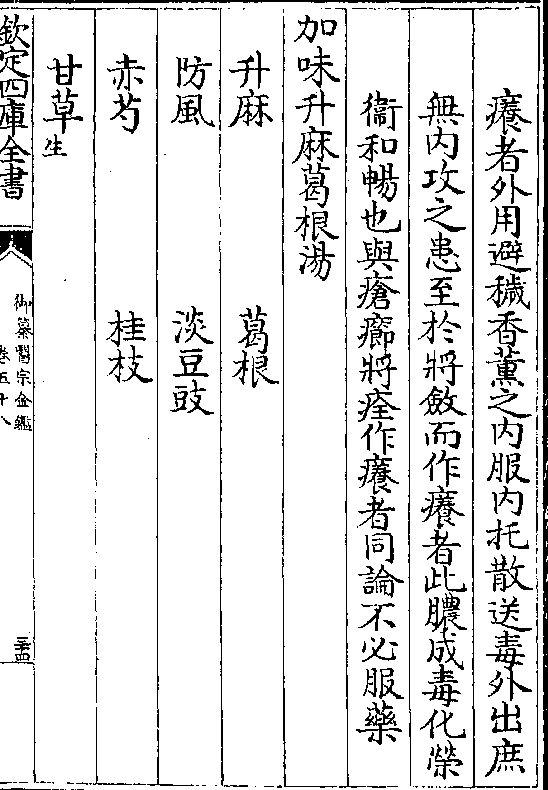 癢者外用避穢香薫之内服内托散送毒外出庶
無内攻之患至於將斂而作癢者此膿成毒化榮
衞和暢也與瘡癤將痊作癢者同論不必服藥
加味升麻葛根湯
升麻　葛根
防風　淡豆豉
赤芍　桂枝
甘草生
欽定四庫全書
御纂醫宗金鑑
卷五十八
三十四